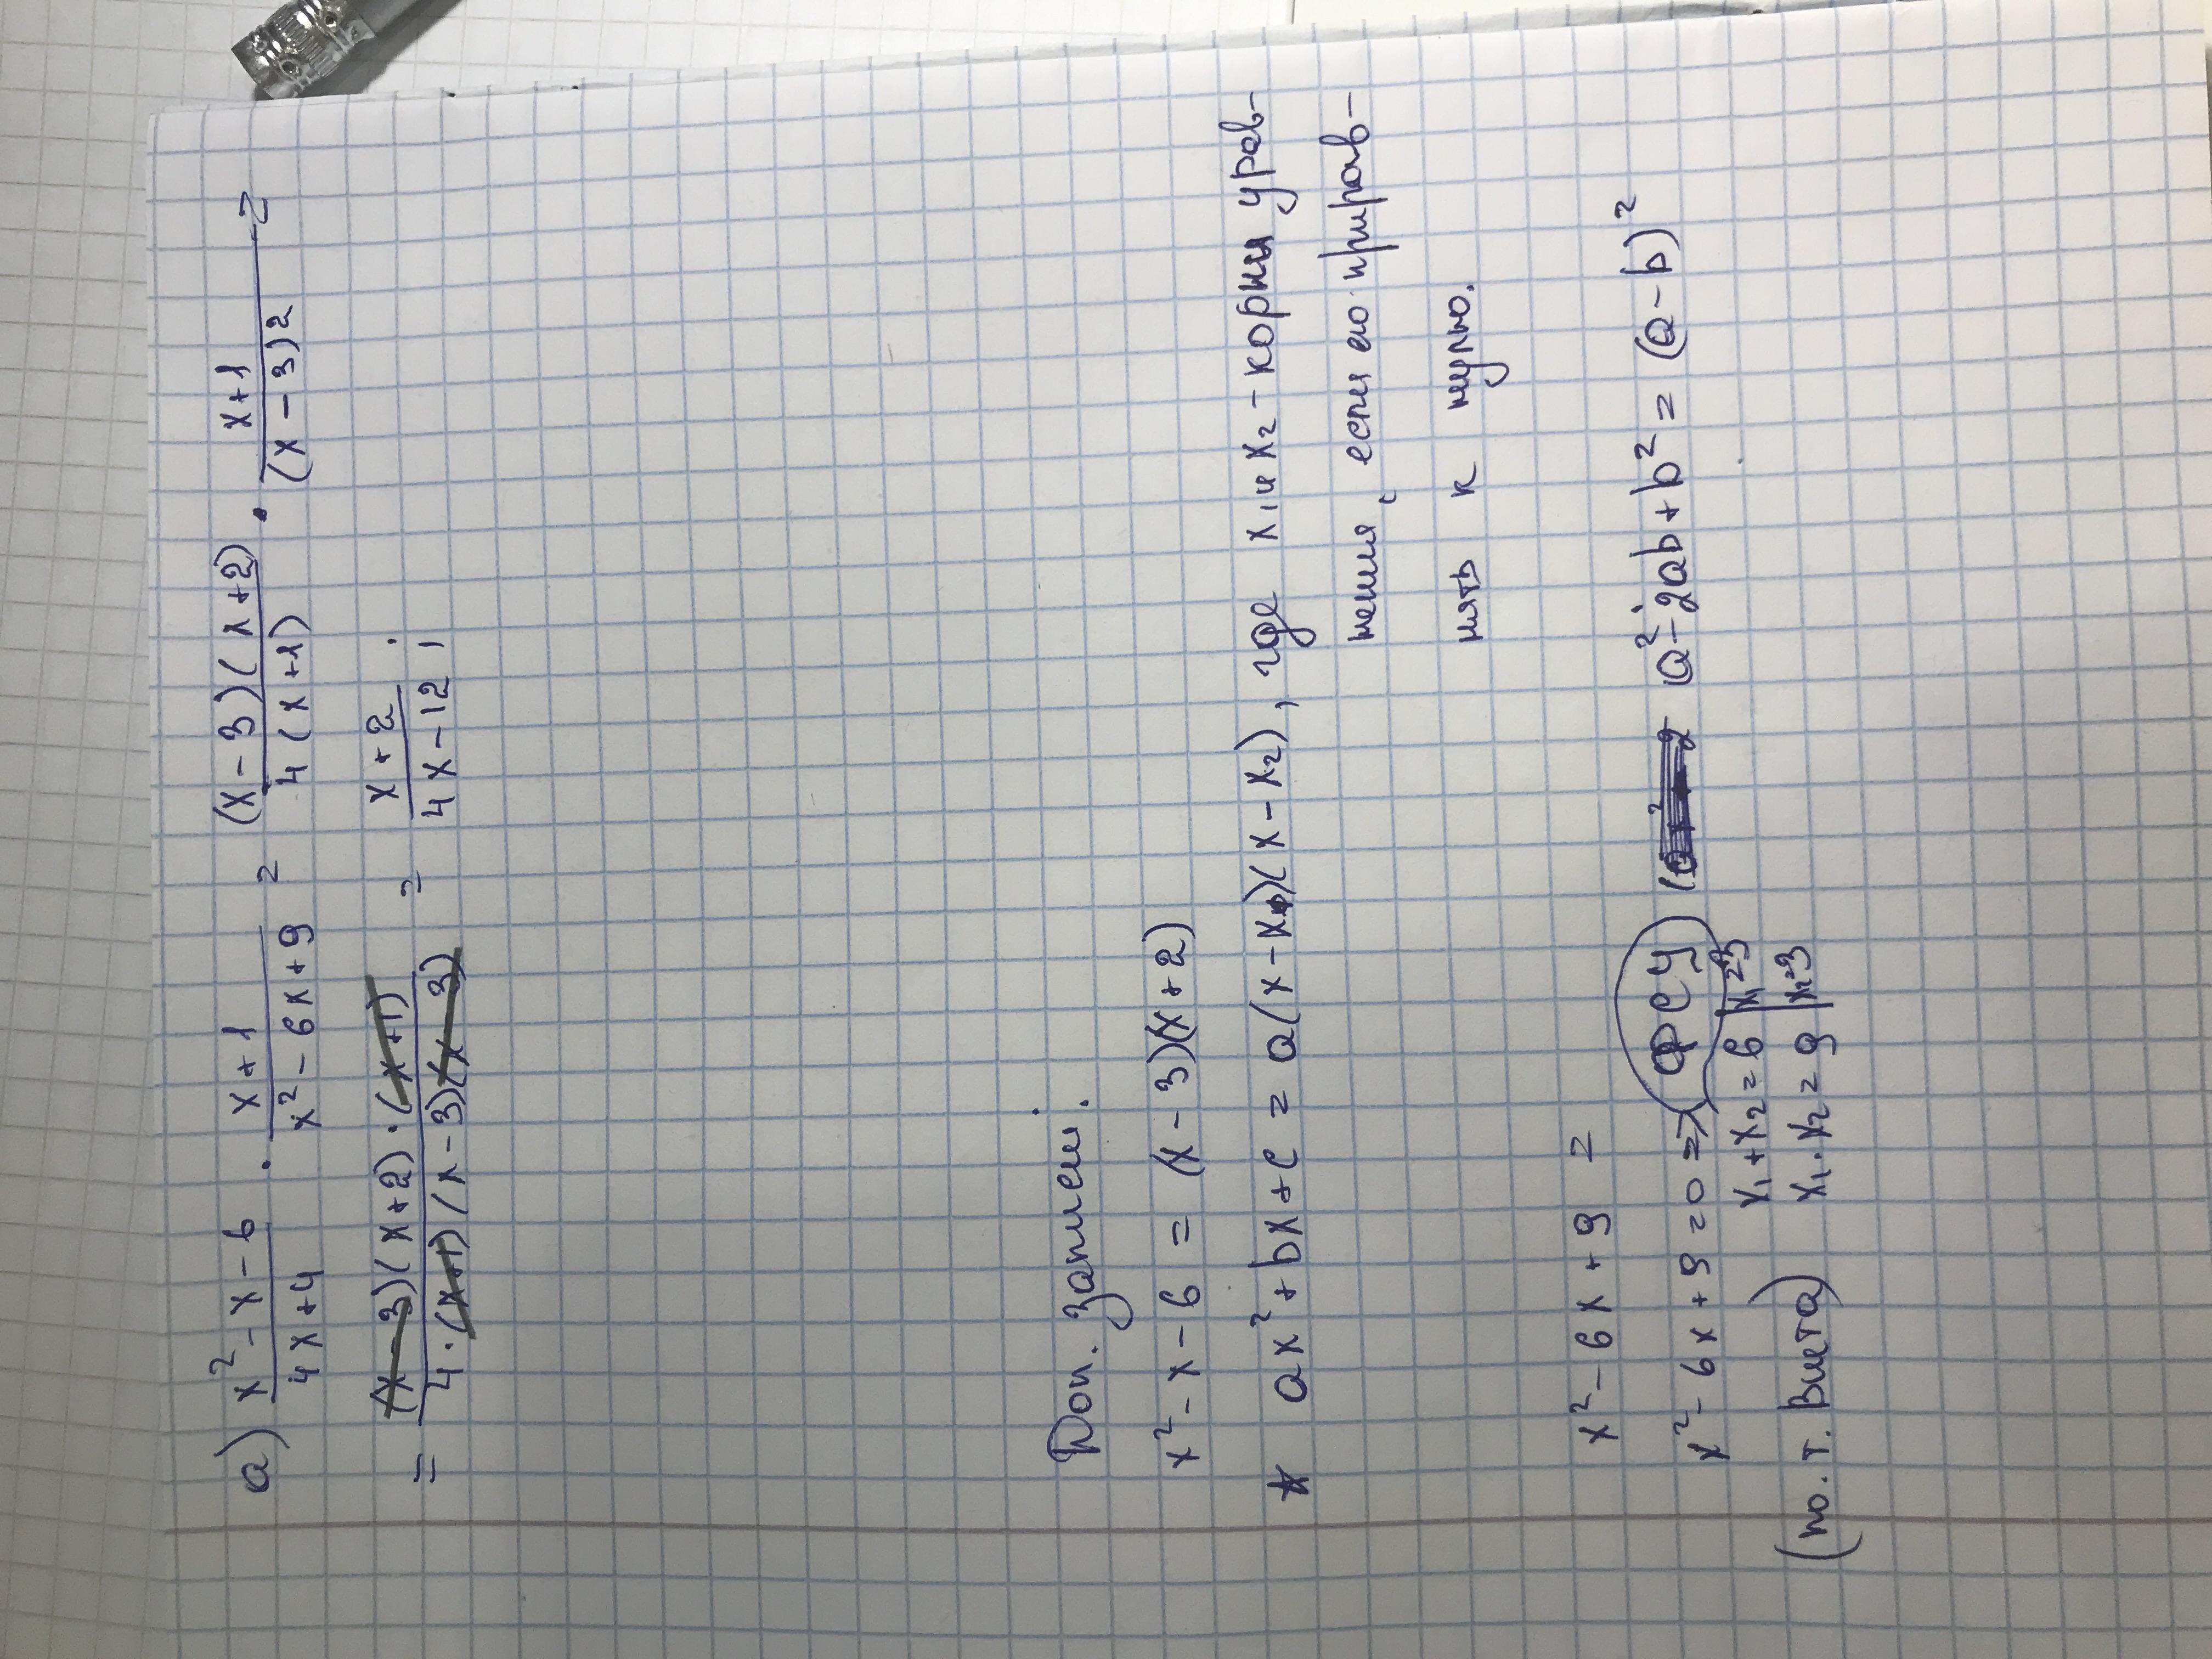 а) (x² - x - 6)/(4x + 4) · (x + 1)/(x² - 6x + 9) = ((x - 3)(x + 2))/(4(x + 1)) · (x + 1)/((x - 3)2) =
= ((x - 3)(x + 2) · (x + 1))/(4 · (x + 1)(x - 3)(x - 3)) = (x + 2)/(4x - 12);
Доп. записи:
x² - x - 6 = (x - 3)(x + 2)
* ax² + bx + c = a(x - x₁)(x - x₂), где x₁ и x₂ - корни урав-
нения, если его прирав-
нять к нулю.
x² - 6x + 9 =
x² - 6x + 9 = 0 => ФСУ a² - 2ab + b² = (a - b)²
x₁ + x₂ = 6 | x₁=3
(по. т. Виета) x₁ · x₂ = 9 | x₂=3